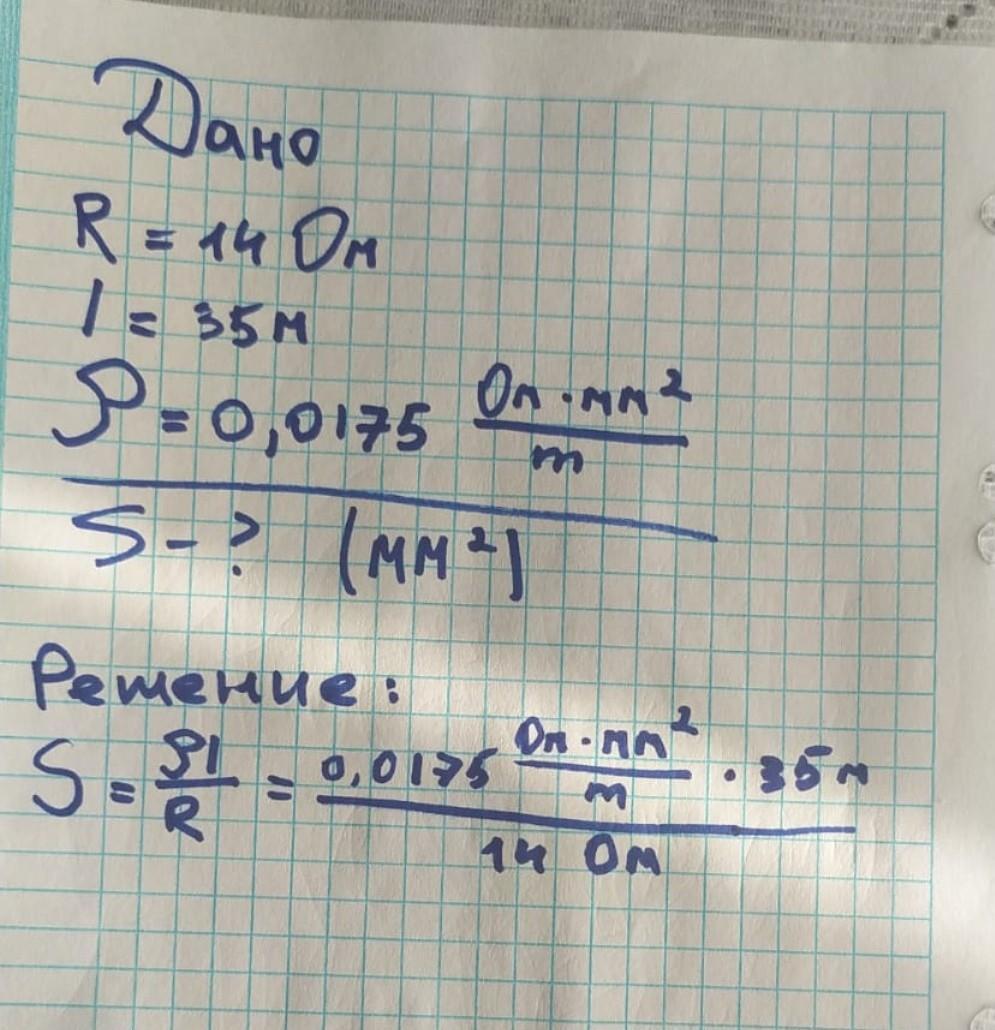 Дано
R = 14 Ом
l = 35 м
ρ = 0,0175 Ом·мм²/м
S - ? (мм²)
Решение:
S = ρl/R = 0,0175 Ом·мм²/м · 35 м / 14 Ом